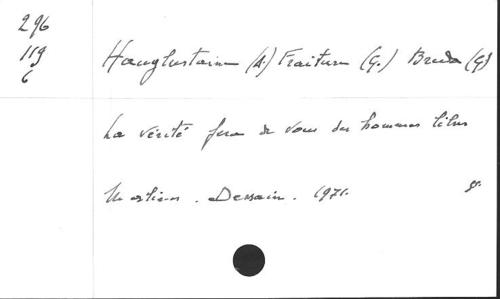 296
119
6
Hauglustaine (A.) Fraiture (G.) Breda (G)
La vérité fera de vous des hommes libres
Dessain. 1971.